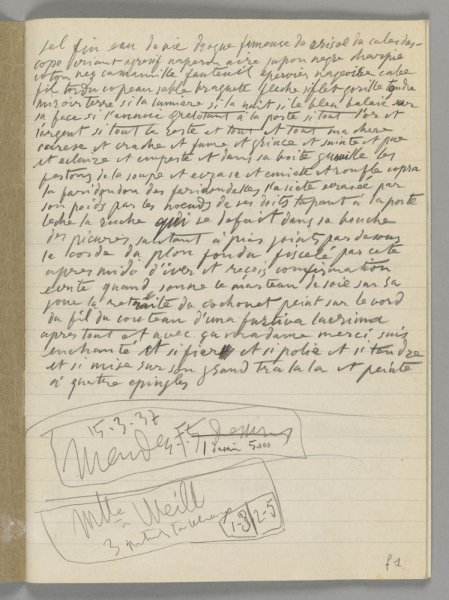 sel fin eau de vie
cope oriant agressif naperon acre jupon negre
coton neg camamille fauteuil epervier
fil tordu copeau sable braguette fleche sifflet gorille
miroir terre si la lumiere si la nuit si le bleu balaie sur
sa face si l'annuie grelotant à la porte si tout l'or et
l'argent si tout le reste et tout et tout ma chere
caresse et crache et fume et grince et suinte et pue
et eclaire et emporte et dans sa boite les
festons de la soupe et ecrase et et ronfle
la faridondon des faridondelles l'assiete ecrasée par
son poids par les noeuds de ses doits tapant à la porte
leche la ruche qui se defait dans sa bouche
des piqures sautant à pies joints par desous
la corde du plon fondu ficelé par cete
apres midi d'iver et reçois confirmation
ecrite quand sonne le marteau de soie sur sa
joue la retraite du cochonet peint sur le bord
du fil du couteau d'una furtiva lacrima
apres tout et avec ça madame merci suis
enchanté et si fier et si polie et si tendre
et si mise sur son grand tra la la et peinte
à quatre epingles
15-3-37
1 dessin 5.000
Mlle Weill
3
1-3 2-5
f 1